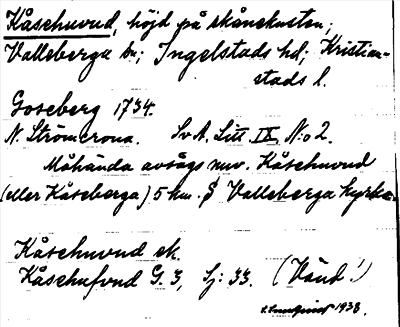 Kåsehuvud, höjd på skånekusten;
Valleberga sn; Ingelstads hd; Kristian-
stads l.
Goseberg 1734.
N. Strömcrona. Sv A. Litt IX, No 2.
Måhända avsågs nuv. Kåsehuvud
(eller Kåseberga) 5 km. S Valleberga kyrka.
Kåsehuvud ek.
Kåsehufvud G. 3, Sj: 33. (Vänd!)
1938.